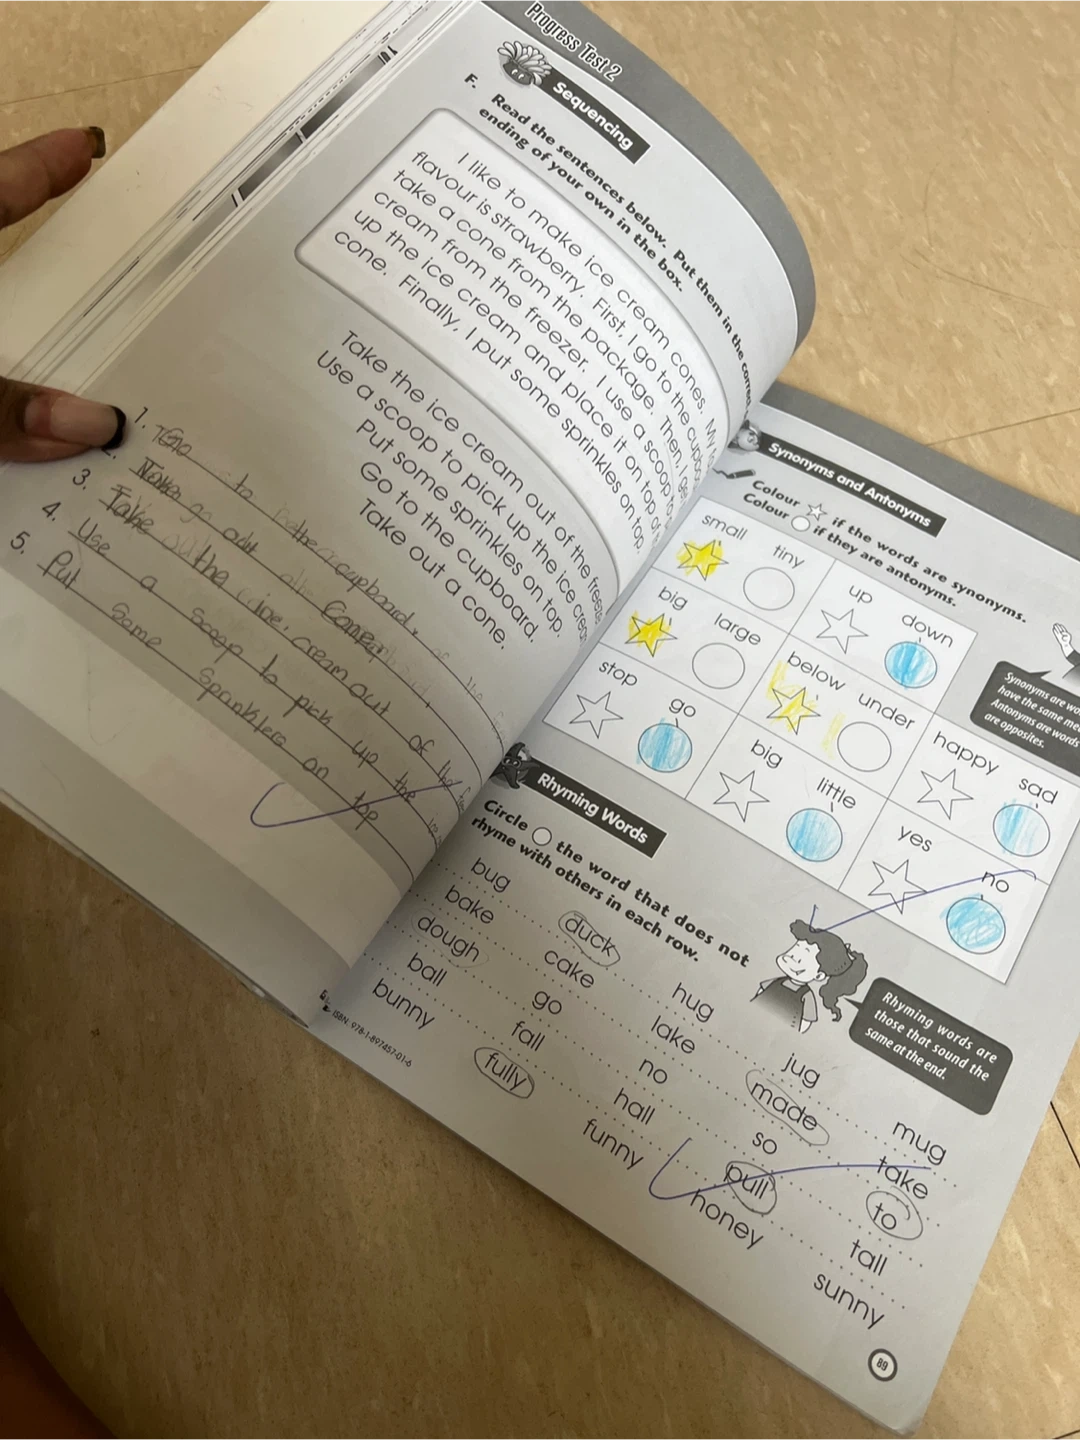 Progress Test 2
Sequencing
F. Read the sentences below. Put them in the correct
ending of your own in the box.
I like to make ice cream cones. My
flavour is strawberry. First, I go to the
take a cone from the package. Then, I
cream from the freezer. I use a scoop to
up the ice cream and place it on top of
cone. Finally, I put some sprinkles on top.
Take the ice cream out of the
Use a scoop to pick up the ice
Put some sprinkles on top.
Go to the cupboard.
Take out a cone.
1. Go to the cupboard.
2. out
3. Take the ice cream out of the
4. Use a scoop to pick up the
5. Put some Sprinkles on top
Synonyms and Antonyms
Colour if the words are synonyms.
Colour if they are antonyms.
small tiny
up down
big large
below under
happy sad
stop go
big little
yes no
Synonyms are
have the same
Antonyms are words
are opposites.
Rhyming Words
Circle the word that does not
rhyme with others in each row.
bug duck hug jug mug
bake cake lake made take
dough go no so to
ball fall hall pull tall
bunny fully funny honey sunny
Rhyming words are
those that sound the
same at the end.
ISBN: 978-1-897457-01-6
89